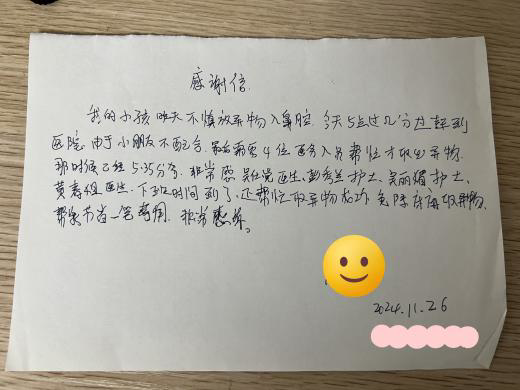 感谢信
我的小孩昨天不慎放异物入鼻腔. 今天5点过几分赶到
医院. 由于小朋友不配合. 最后需要4位医务人员帮忙才取出异物.
那时候已经5:35分了. 非常感 医生、护士、吴丽媚护士、
黄寿 医生. 下班时间到了, 还帮忙取异物成功 免除 取异物.
帮忙节省一笔费用. 非常感谢。
2024.11.26